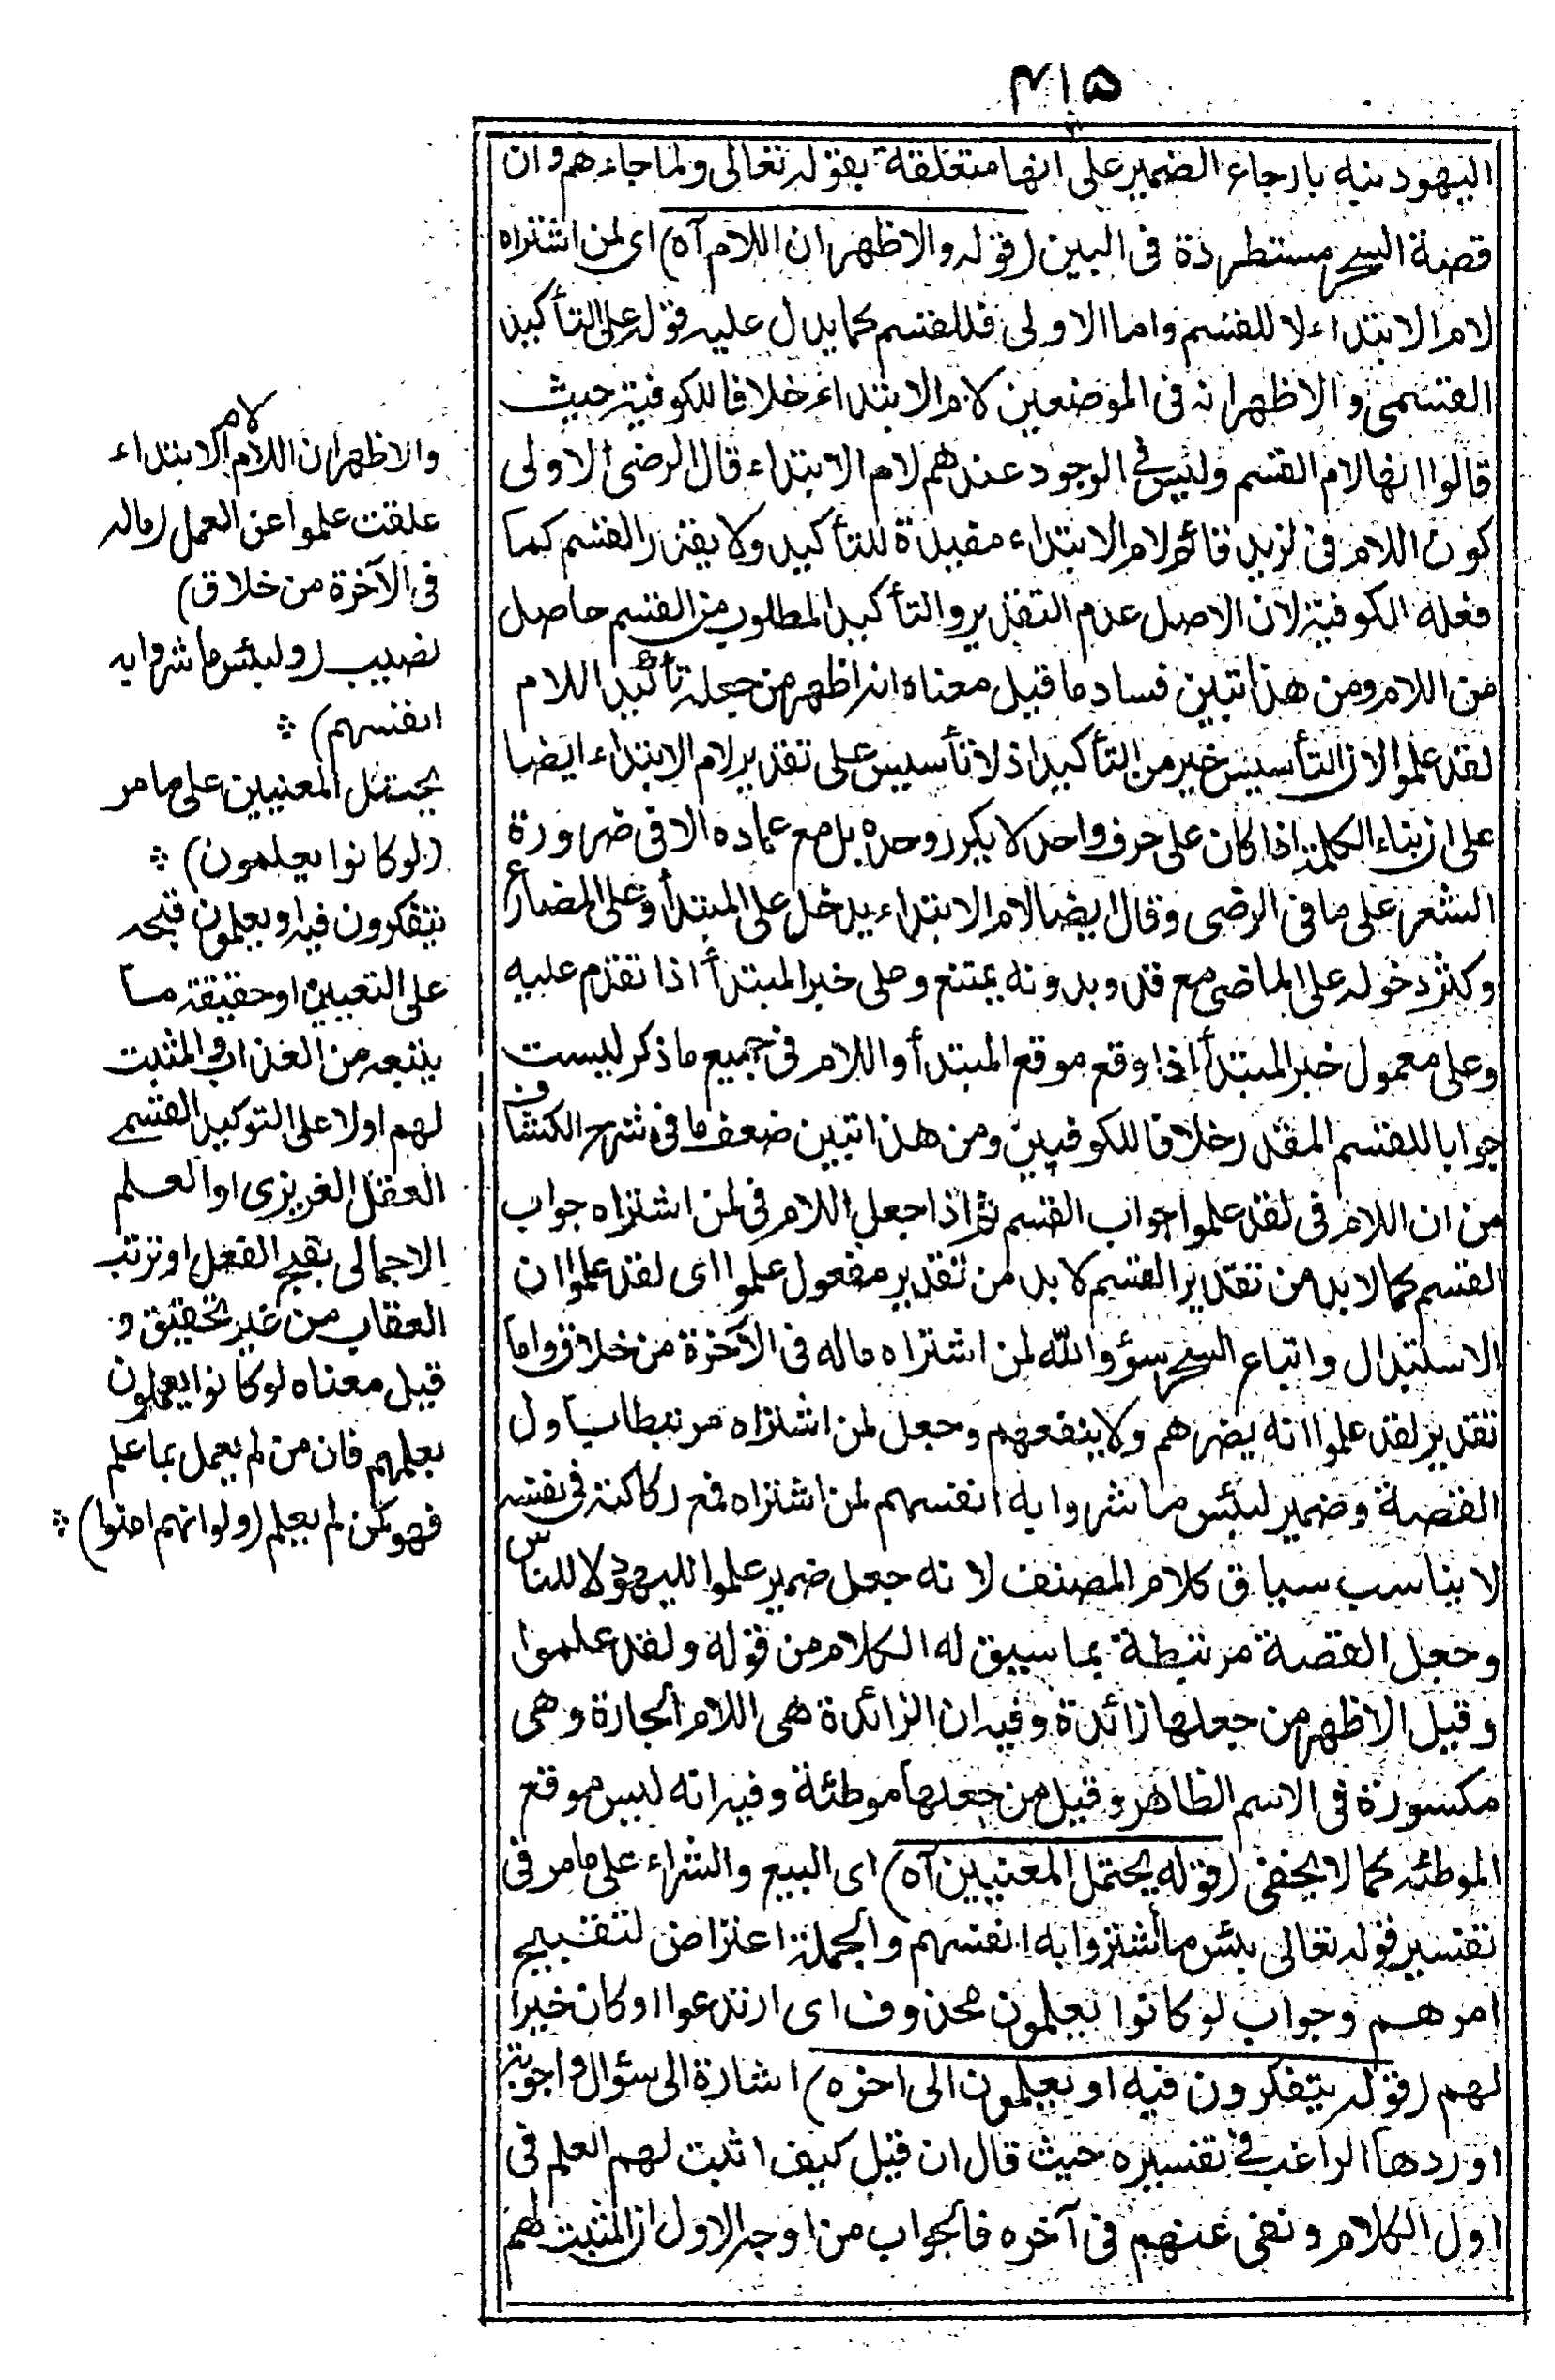 ۴۱۵
اليهود نبه بارجاع الضمير على انها متعلقة بقوله تعالى ولما جاءهم وان
قصة السحر مستطردة فى البين (قوله والاظهر ان اللام آه) اى لمن اشتراه
لام الابتداء لا للقسم واما الاولى فللقسم كما يدل عليه قوله على التأكيد
القسمى والاظهر انه فى الموضعين لام الابتداء خلافا للكوفية حيث
قالوا انها لام القسم وليس فى الوجود عندهم لام الابتداء قال الرضى الاولى
كون اللام فى لزيد قائم لام الابتداء مفيدة للتأكيد ولا يقدر القسم كما
فعله الكوفية لان الاصل عدم التقدير والتأكيد المطلوب من القسم حاصل
من اللام ومن هذا تبين فساد ما قيل معناه انه اظهر من جعله تأكيد اللام
لقد علموا لان التأسيس خير من التأكيد اذ لا تأسيس على تقدير لام الابتداء ايضا
على ان بناء الكلمة اذا كان على حرف واحد لا يكرر وحده بل مع عماده الا فى ضرورة
الشعر على ما فى الرضى وقال ايضا لام الابتداء يدخل على المبتدأ وعلى المضارع
وكثر دخوله على الماضى مع قد وبدونه يمتنع وعلى خبر المبتدأ اذا تقدم عليه
وعلى معمول خبر المبتدأ اذا وقع موقع المبتدأ واللام فى جميع ما ذكر ليست
جوابا للقسم المقدر خلافا للكوفيين ومن هذا تبين ضعف ما فى شرح الكشاف
من ان اللام فى لقد علموا جواب القسم ثم اذا جعل اللام فى لمن اشتراه جواب
القسم كما لا بد من تقدير القسم لا بد من تقدير مفعول علموا اى لقد علموا ان
الاستبدال واتباع السحر سؤ والله لمن اشتراه ماله فى الآخرة من خلاق واما
تقدير لقد علموا انه يضرهم ولا ينفعهم وجعل لمن اشتراه مرتبطا باول
القصة وضمير لبئس ما شروا به انفسهم لمن اشتراه فمع ركاكته فى نفسه
لا يناسب سياق كلام المصنف لانه جعل ضمير علموا لليهود لا للناس
وجعل القصة مرتبطة بما سيق له الكلام من قوله ولقد علموا
وقيل الاظهر من جعلها زائدة وفيه ان الزائدة هى اللام الجارة وهى
مكسورة فى الاسم الظاهر وقيل من جعلها موطئة وفيه انه ليس موقع
الموطئه كما لا يخفى (قوله يحتمل المعنيين آه) اى البيع والشراء على ما مر فى
تفسير قوله تعالى بئس ما اشتروا به انفسهم والجملة اعتراض لتقبيح
امرهم وجواب لو كانوا يعلمون محذوف اى ارتدعوا او كان خيرا
لهم (قوله يتفكرون فيه او يعلمون الى اخره) اشارة الى سؤال واجوبة
اوردها الراغب فى تفسيره حيث قال ان قيل كيف اثبت لهم العلم فى
اول الكلام ونفى عنهم فى آخره فالجواب من اوجه الاول ان المثبت لهم
والاظهر ان اللام لام الابتداء
علقت علموا عن العمل (ماله
فى الآخرة من خلاق)
نصيب (ولبئس ما شروا به
انفسهم) ؞
يحتمل المعنيين على ما مر
(لو كانوا يعلمون) ؞
يتفكرون فيه او يعلمون قبحه
على التعيين او حقيقة ما
يتبعه من العذاب والمثبت
لهم اولا على التوكيد القسمى
العقل الغريزى او العلم
الاجمالى بقبح الفعل او ترتب
العقاب من غير تحقيق و
قيل معناه لو كانوا يعملون
بعلمهم فان من لم يعمل بما علم
فهو كمن لم يعلم (ولو انهم امنوا) ؞